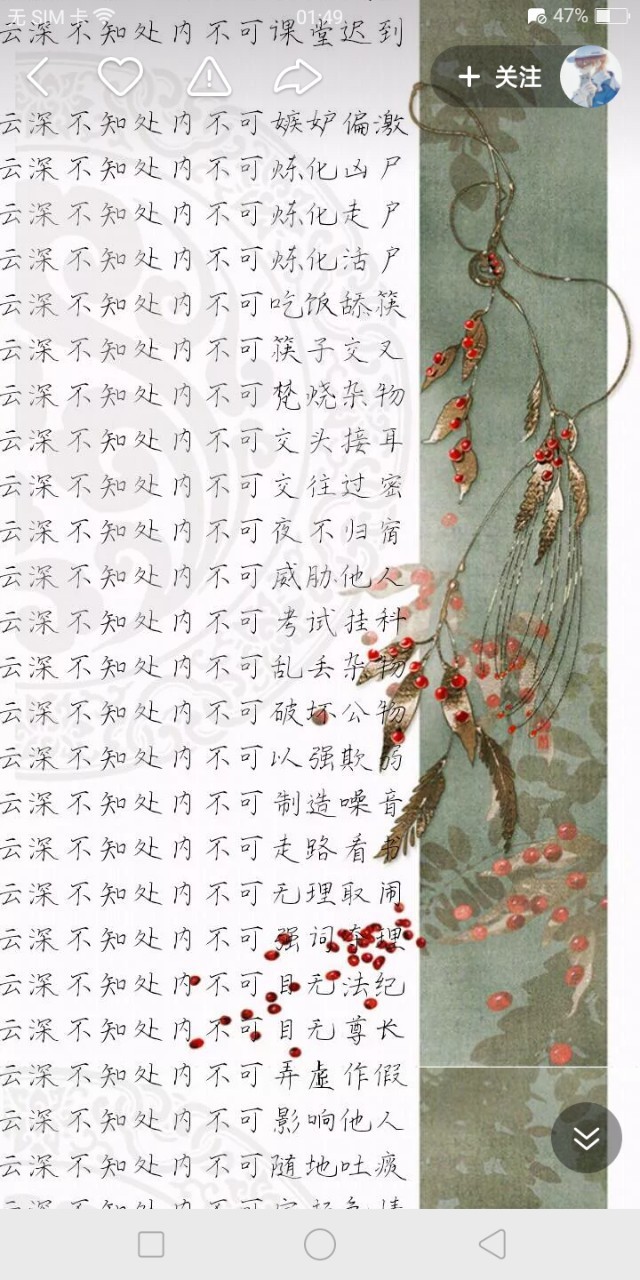 无 SIM 卡 01:49 47%
云深不知处内不可课堂迟到
+ 关注
云深不知处内不可嫉妒偏激
云深不知处内不可炼化凶尸
云深不知处内不可炼化走尸
云深不知处内不可炼化活尸
云深不知处内不可吃饭舔筷
云深不知处内不可筷子交叉
云深不知处内不可焚烧杂物
云深不知处内不可交头接耳
云深不知处内不可交往过密
云深不知处内不可夜不归宿
云深不知处内不可威胁他人
云深不知处内不可考试挂科
云深不知处内不可乱丢杂物
云深不知处内不可破坏公物
云深不知处内不可以强欺弱
云深不知处内不可制造噪音
云深不知处内不可走路看书
云深不知处内不可无理取闹
云深不知处内不可强词夺理
云深不知处内不可目无法纪
云深不知处内不可目无尊长
云深不知处内不可弄虚作假
云深不知处内不可影响他人
云深不知处内不可随地吐痰
云深不知处内不可